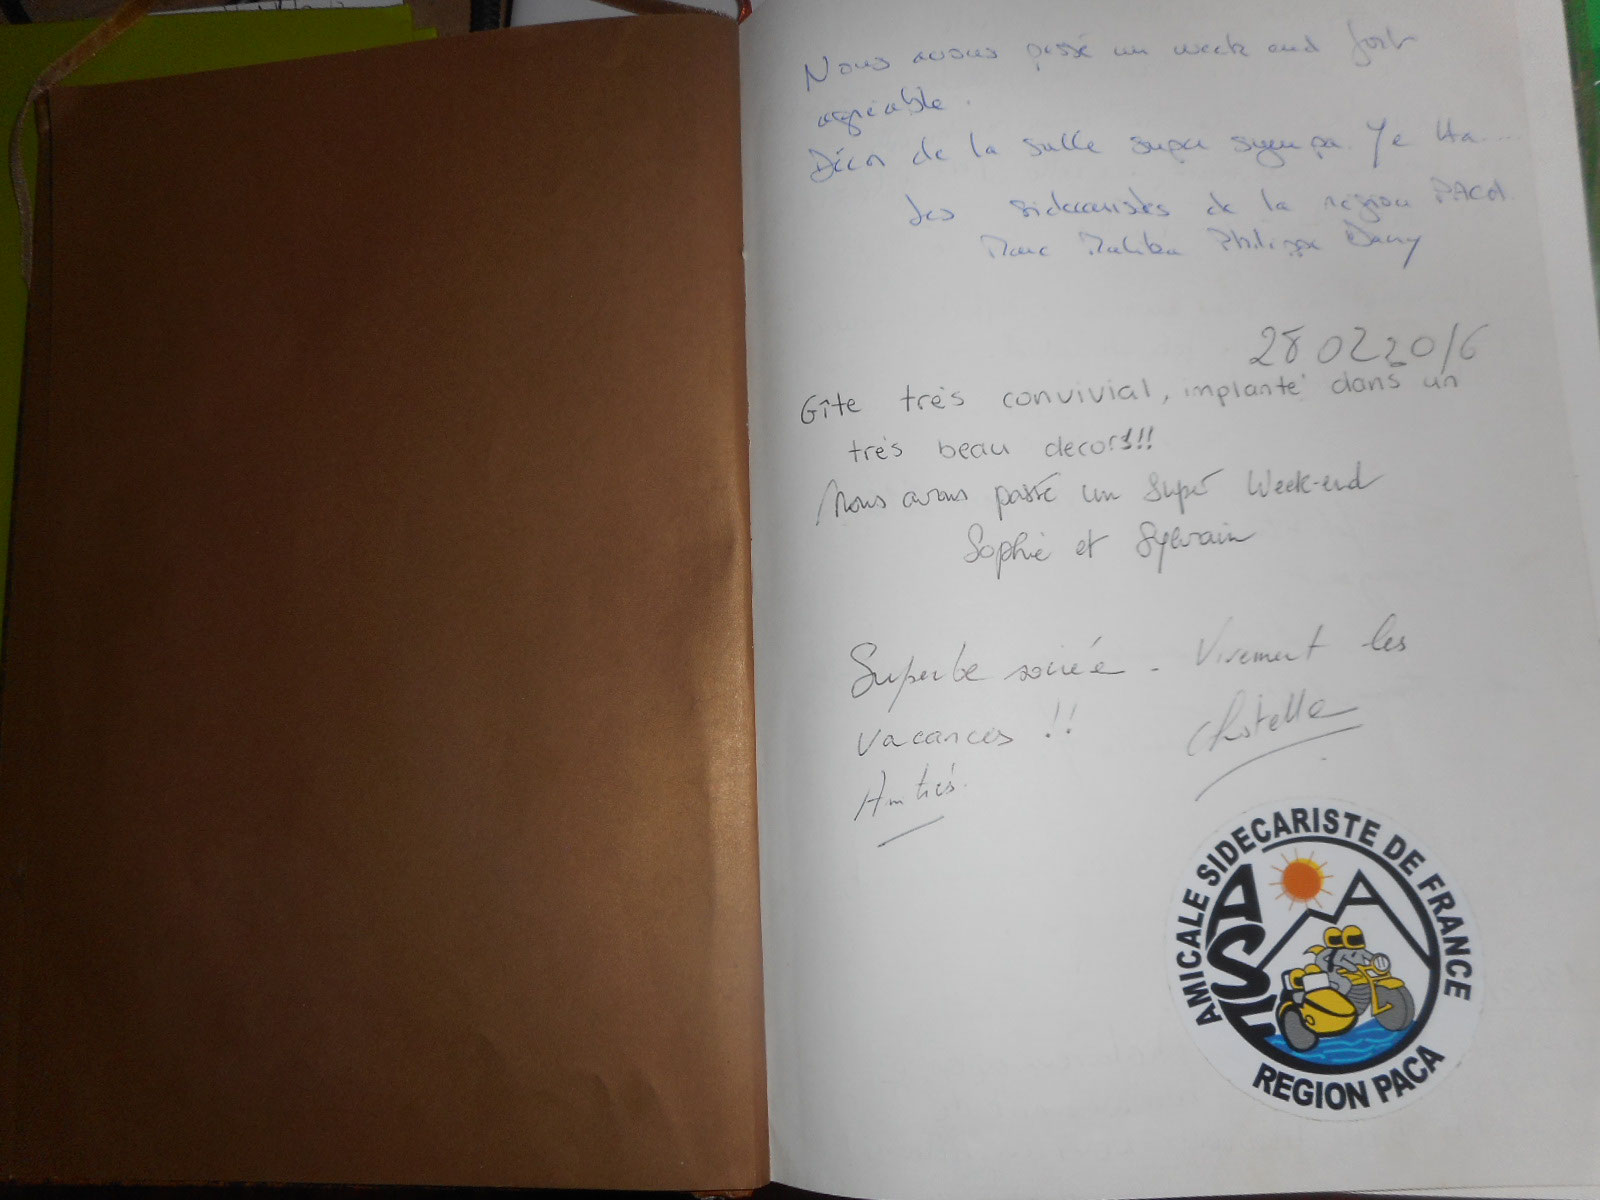 Nous avons passé un week end fort
agréable.
Décor de la salle super sympa. Ye Ha.....
Les sidecaristes de la région PACA
Marc Philippe Dany
28 02 2016
Gîte très convivial, implanté dans un
très beau decors!!!
Nous avons passé un super Week-end
Sophie et Sylvain
Superbe soirée - Vivement les
vacances !!
Amitiés.
AMICALE SIDECARISTE DE FRANCE
ASF
REGION PACA